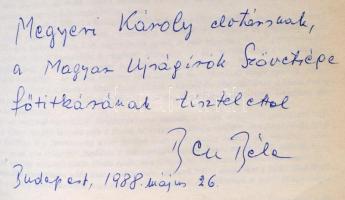 Megyeri Károly elvtársnak,
a Magyar Ujságírók Szövetsége
főtitkárának tisztelettel
Béla
Budapest, 1988. május 26.